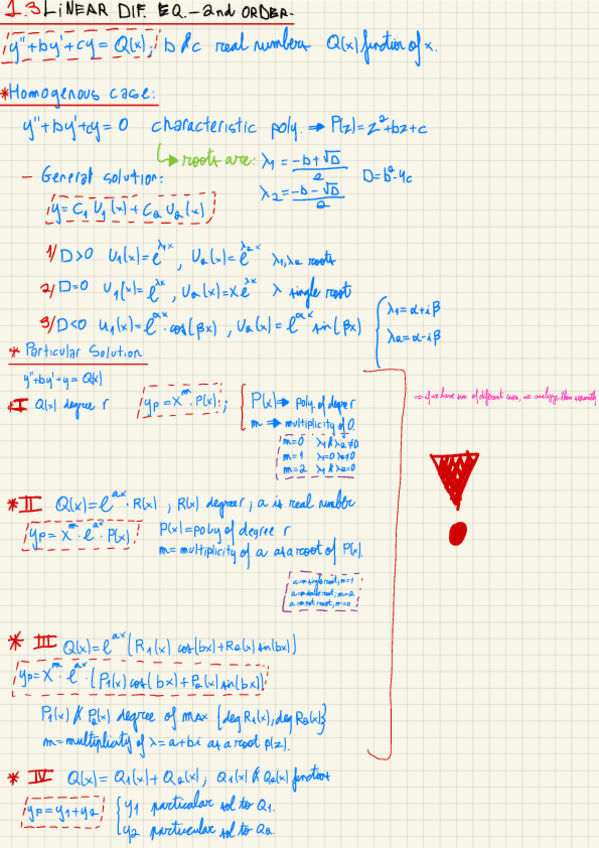 1.3 LiNEAR DIF. EQ. - 2nd ORDER.
y''+by'+cy=Q(x); b & c real numbers Q(x) function of x.
* Homogenous case:
y''+by'+cy=0 characteristic poly. ⇒ P(z)=z²+bz+c
↳ roots are: λ1 = (-b+√D)/2 D=b²-4c
λ2 = (-b-√D)/2
- General solution:
y = C1 U1(x) + C2 U2(x)
1/ D>0 U1(x)=e^λ1x, U2(x)=e^λ2x λ1,λ2 roots
2/ D=0 U1(x)=e^λx, U2(x)=xe^λx λ single root
3/ D<0 U1(x)=e^αx·cos(βx), U2(x)=e^αx sin(βx) { λ1=α+iβ
λ2=α-iβ
* Particular Solution
y''+by'+y=Q(x)
* I Q(x) degree r yp=x^m·P(x); { P(x)⇒ poly. of degree r
m ⇒ multiplicity of 0.
m=0 λ1&λ2≠0
m=1 λ1=0 λ2≠0
m=2 λ1&λ2=0
⇒ if we have sum of different cases, we analyze them separately
!
* II Q(x)=e^ax·R(x), R(x) degree r, a is real number
yp=x^m·e^ax·P(x) P(x)=poly of degree r
m= multiplicity of a as a root of P(x).
a⇒single root; m=1
a⇒double root; m=2
a⇒not root; m=0
* III Q(x)=e^ax(R1(x) cos(bx)+R2(x) sin(bx))
yp=x^m·e^ax·(P1(x) cos(bx)+P2(x) sin(bx))
P1(x) & P2(x) degree of max {deg R1(x), deg R2(x)}
m=multiplicity of λ=a+bi as a root p(z).
* IV Q(x)=Q1(x)+Q2(x); Q1(x) & Q2(x) functions
yp=y1+y2 { y1 particular sol to Q1.
y2 particular sol to Q2.